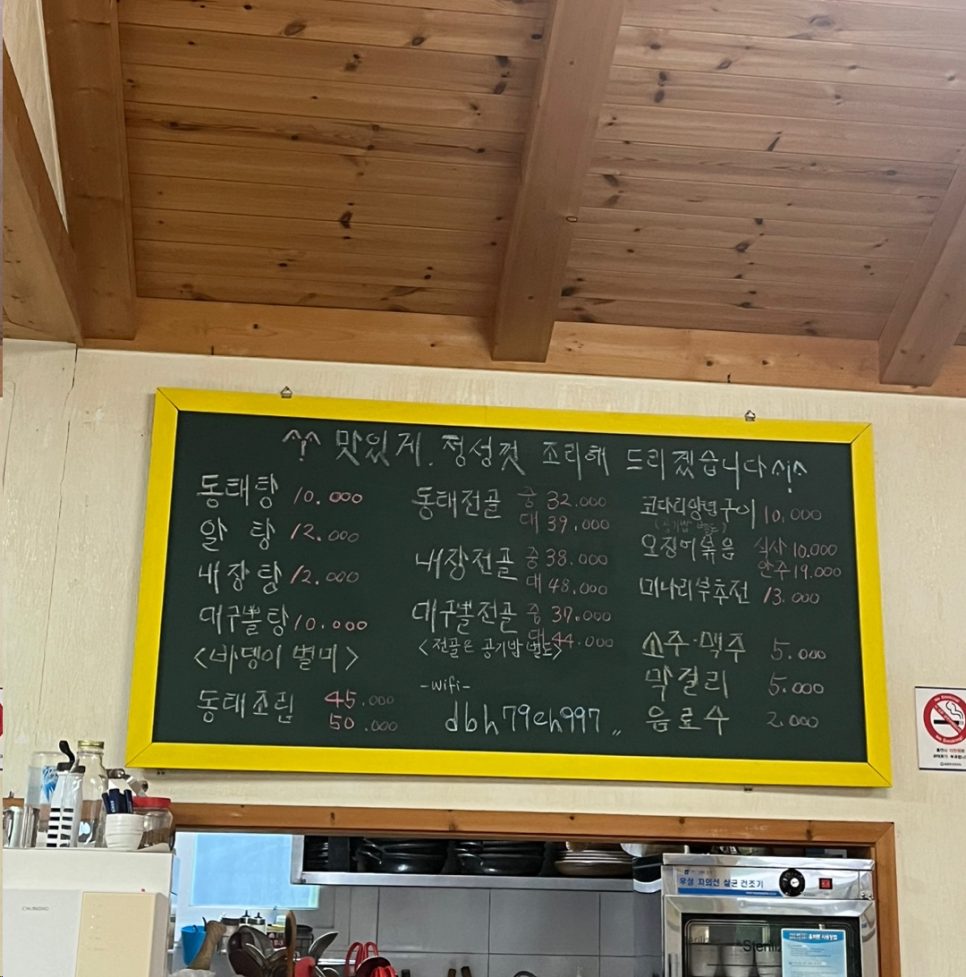 ^^ 맛있게. 정성껏 조리해 드리겠습니다 ^^
동태탕 10.000
알 탕 12.000
내장탕 12.000
대구뽈탕 10.000
<바뎅이 별미>
동태조림 45.000
50.000
동태전골 중 32.000
대 39.000
내장전골 중 38.000
대 48.000
대구뽈전골 중 37.000
대 44.000
<전골은 공기밥 별도>
-wifi-
dbh79eh997 〃
코다리양념구이 10,000
(공기밥 별도)
오징어볶음 식사 10.000
안주 19.000
미나리부추전 13.000
소주·맥주 5.000
막걸리 5.000
음료수 2.000
No Smoking!
No Smoking!
CHUNGHO
자외선 살균 건조기